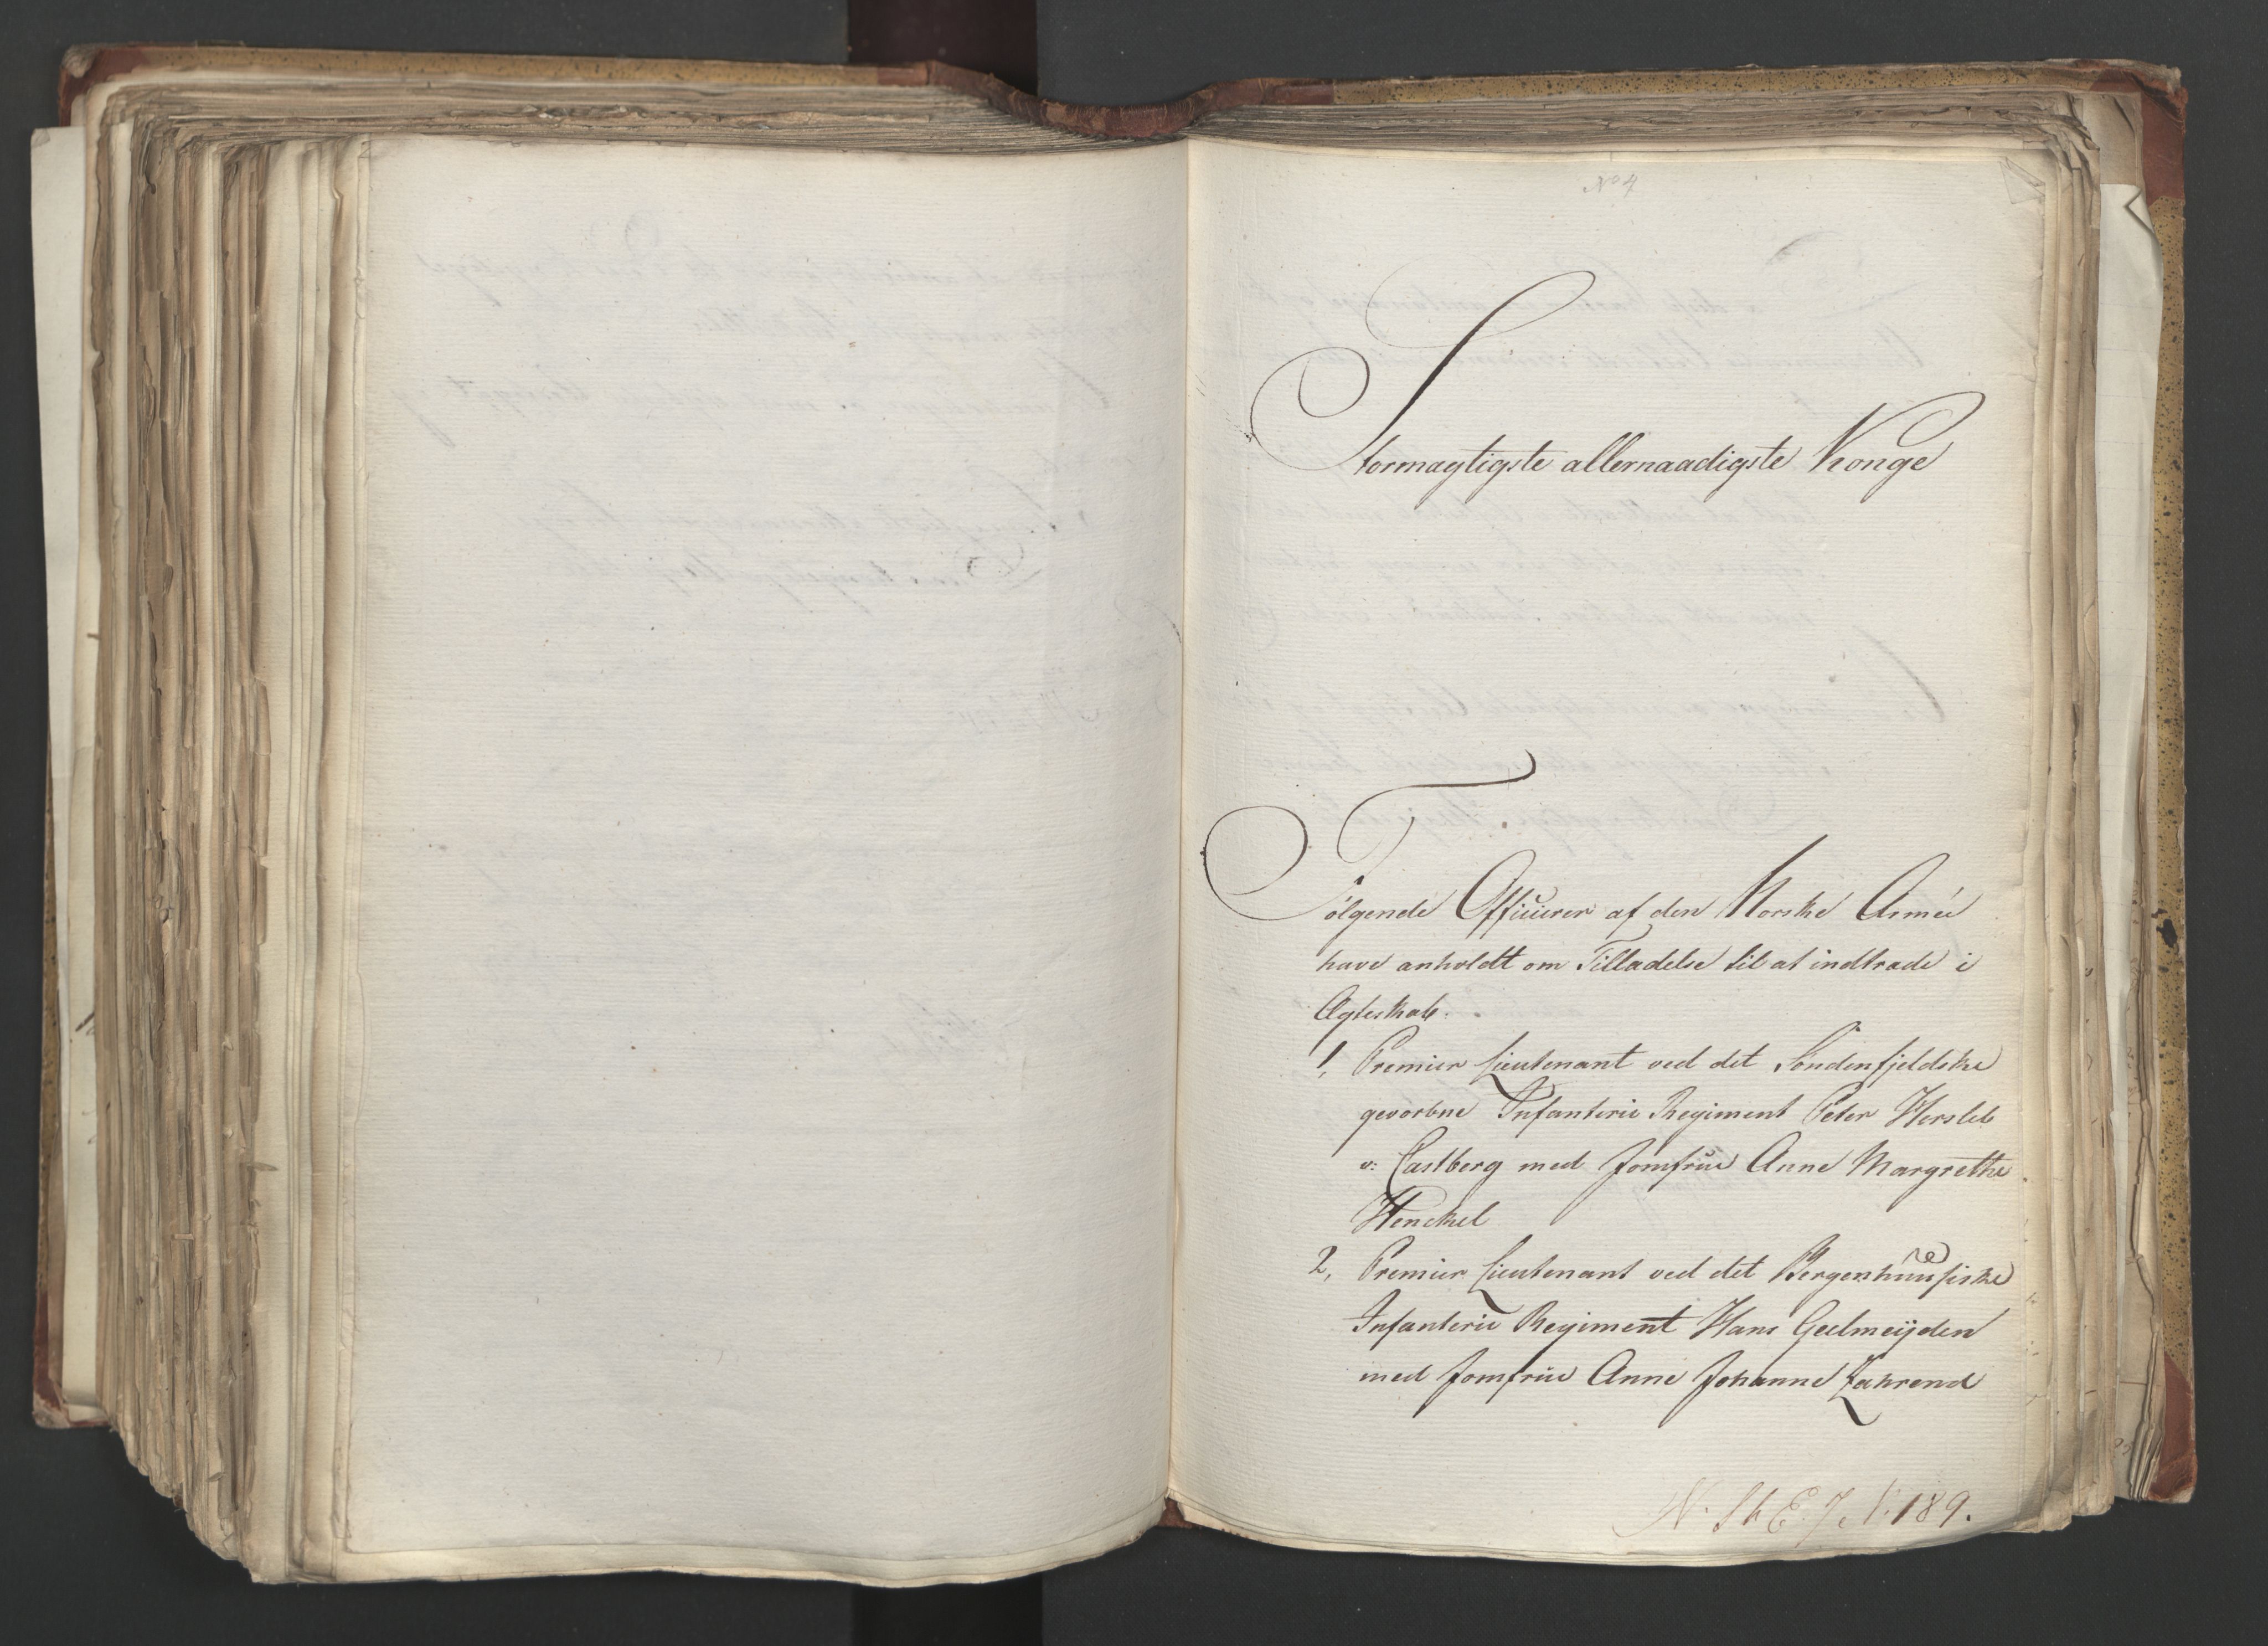 No 4
Stormagtigste allernaadigste Konge
Følgende Officierer af den Norske Armée
have anholdt om Tilladelse til at indtræde i
Ægteskab.
1, Premier Lieutenant ved det Søndenfjeldske
gevorbne Infanterie Regiment Peter Hersleb
v: Castberg med Jomfrue Anne Margrethe
Henckel
2, Premier Lieutenant ved det Bergenhuusiske
Infanterie Regiment Hans Geelmeijden
med Jomfrue Anne Johanne
N. St. E. J. N. 189.